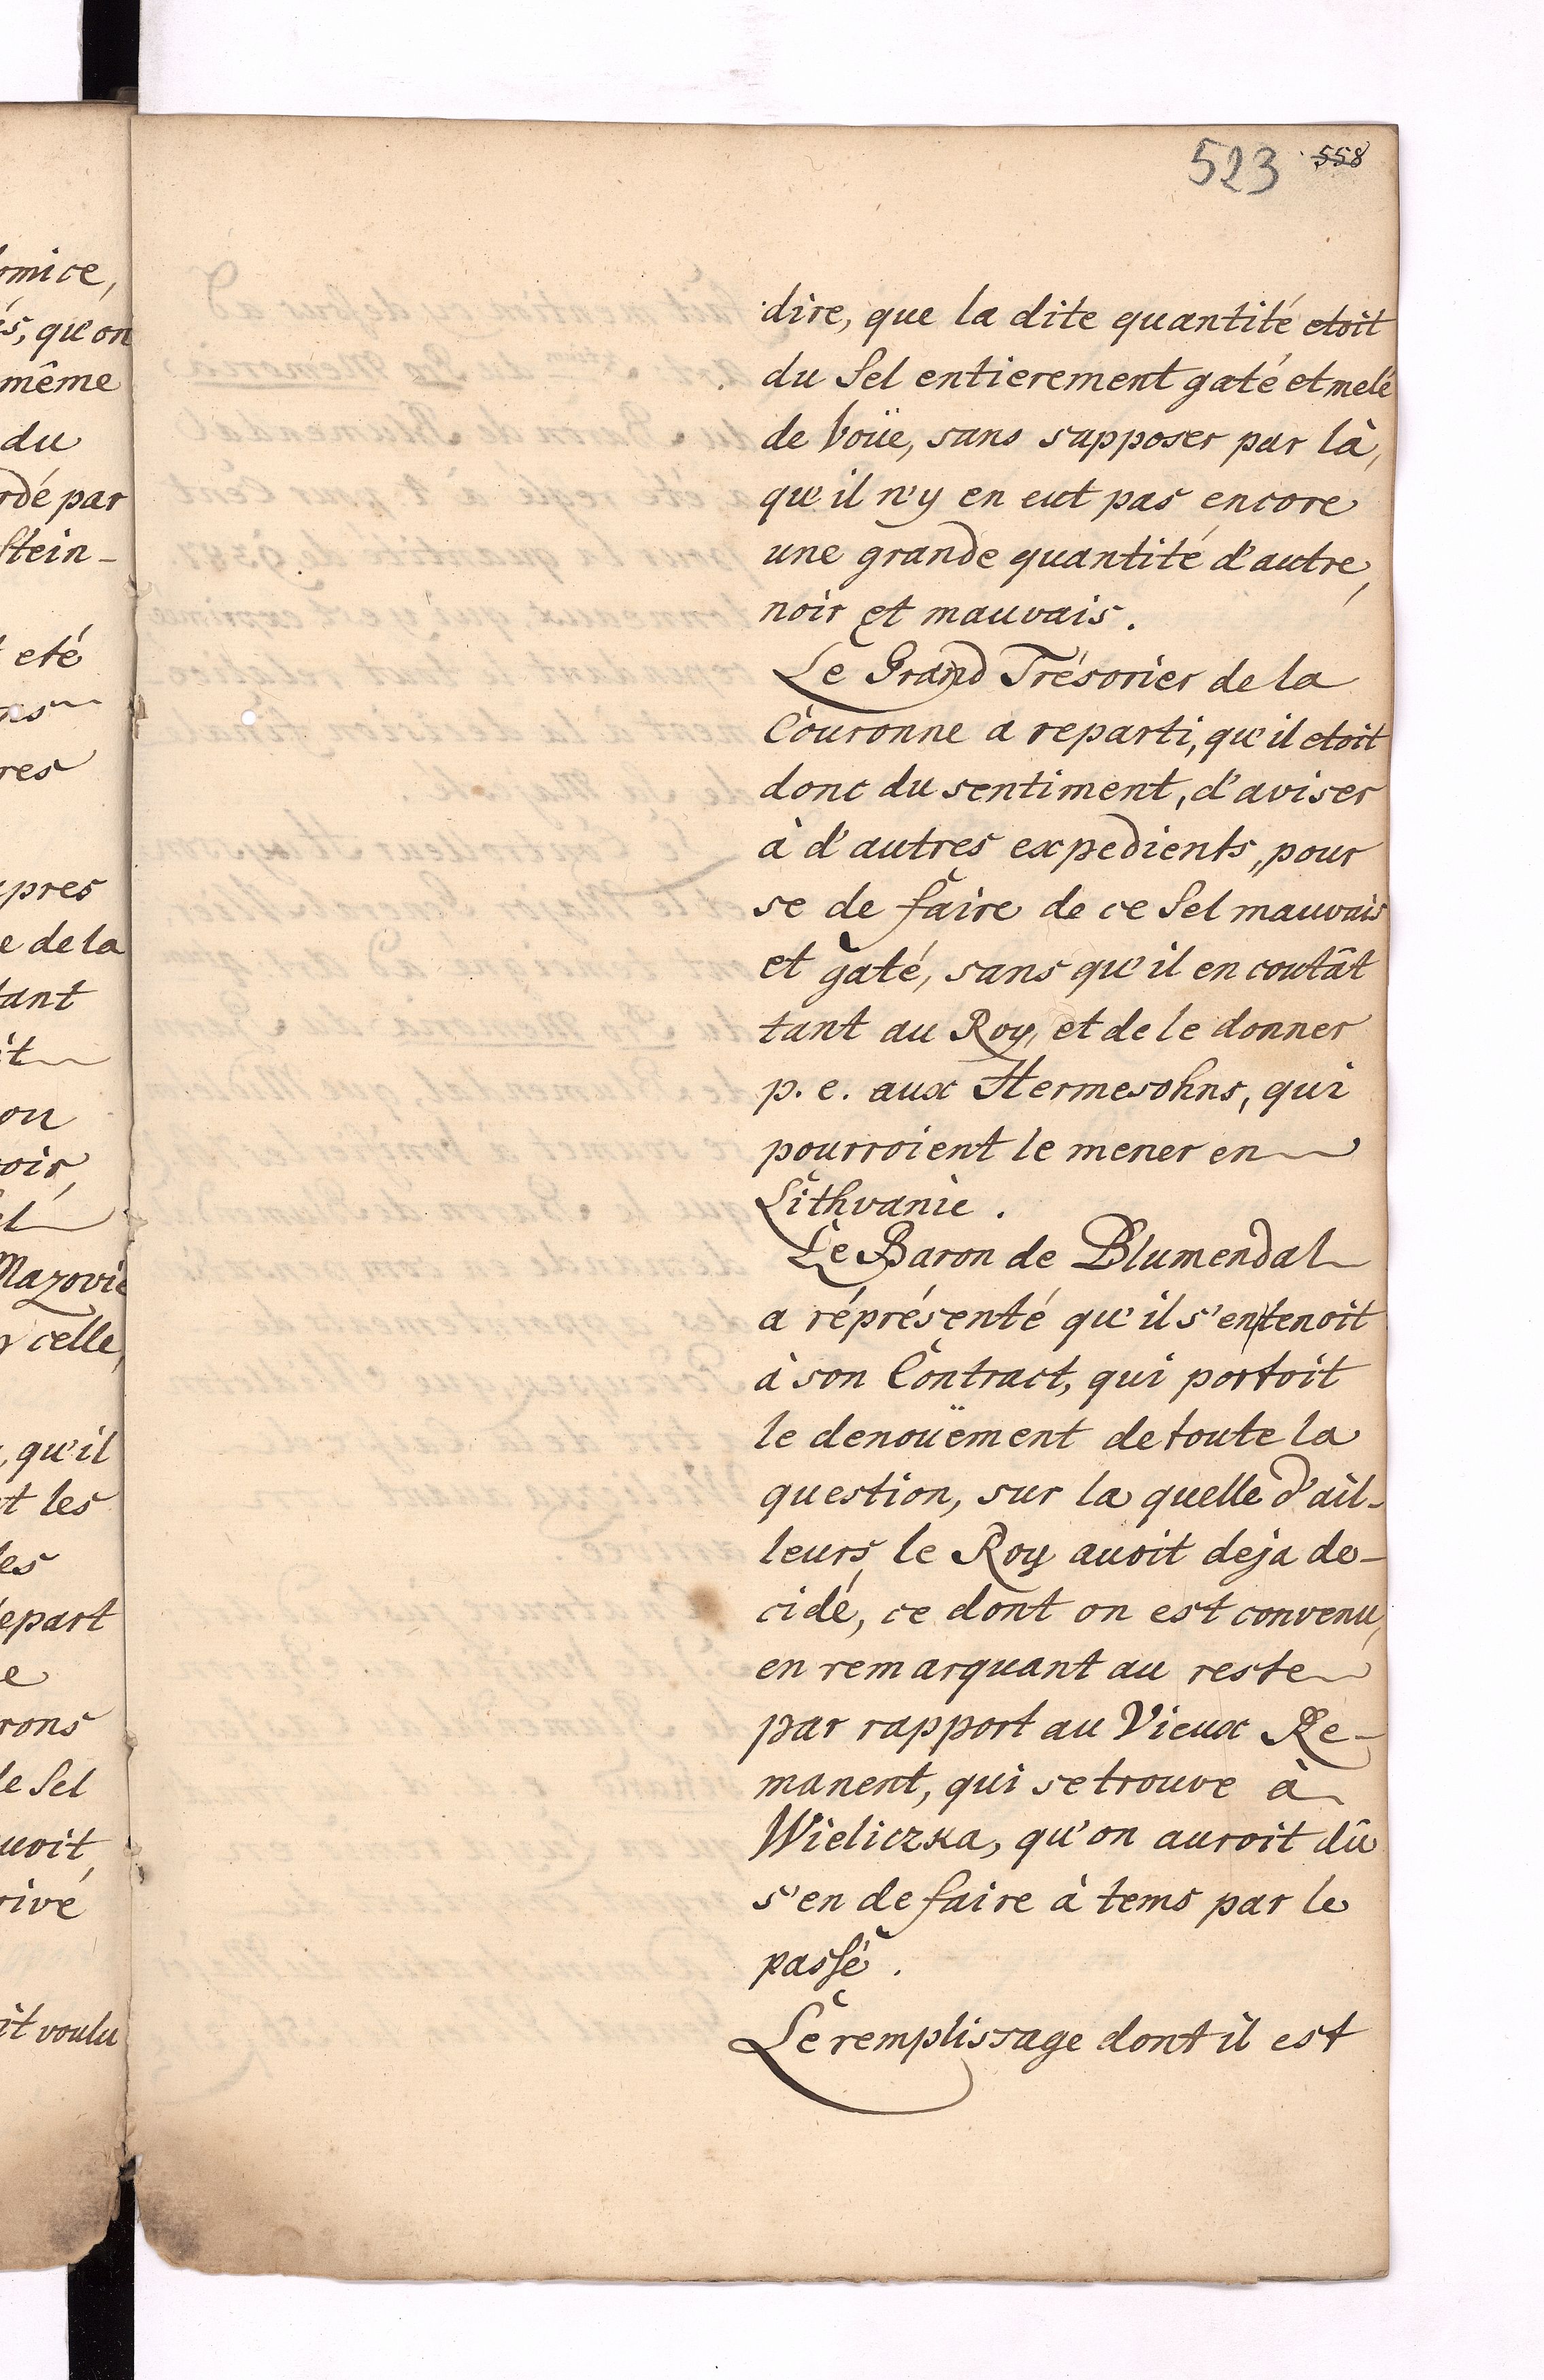 523 558
dire, que la dite quantité etoit
du Sel entierement gaté et melé
de boüe, sans supposer par là,
qu'il n'y en eut pas encore
une grande quantité d'autre,
noir et mauvais.
Le Grand Trésorier de la
Couronne a reparti, qu'il etoit
donc du sentiment, d'aviser
à d'autres expedients, pour
se defaire de ce Sel mauvais
et gaté, sans qu'il en coutât
tant au Roy, et de le donner
p. e. aux Hermesohns, qui
pourroient le mener en
Lithvanie.
Le Baron de Blumendal
a réprésenté qu'il s'en tenoit
à son Contract, qui portoit
le denoüement de toute la
question, sur la quelle d'ail-
leurs le Roy avoit deja de-
cidé, ce dont on est convenu,
en remarquant au reste
par rapport au Vieux Re-
manent, qui se trouve à
Wieliczka, qu'on auroit dû
s'en defaire à tems par le
passé.
Le remplissage dont il est
omice,
és, qu'on
même
du
rdé par
Stein-
eté
res
pres
e de la
tant
it
ou
oir,
el
Mazovie
celle,
, qu'il
t les
les
epart
e
rons
le Sel
uvoit,
rivé
it voulu